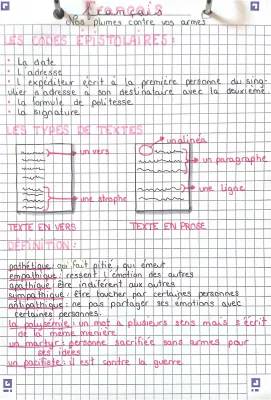 Français
Nos plumes contre vos armes
LES CODES ÉPISTOLAIRES :
• La date
• L'adresse
• L'expéditeur écrit à la première personne du sing-
ulier s'adresse à son destinataire avec la deuxième.
• La formule de politesse
• La signature
LES TYPES DE TEXTES
un alinéa
un vers
un paragraphe
une ligne
une strophe
TEXTE EN VERS
TEXTE EN PROSE
DÉFINITION :
pathétique : qui fait pitié, qui émeut
empathique : ressent l'émotion des autres
apathique : être indiférent aux autres
sympathique : être toucher par certaines personnes
antipathique : ne pas partager ses émotions avec
certaines personnes.
la polysémie : un mot a plusieurs sens mais s'écrit
de la même manière
un martyr : personne sacrifiée sans armes pour
ses idées
un pacifiste : il est contre la guerre